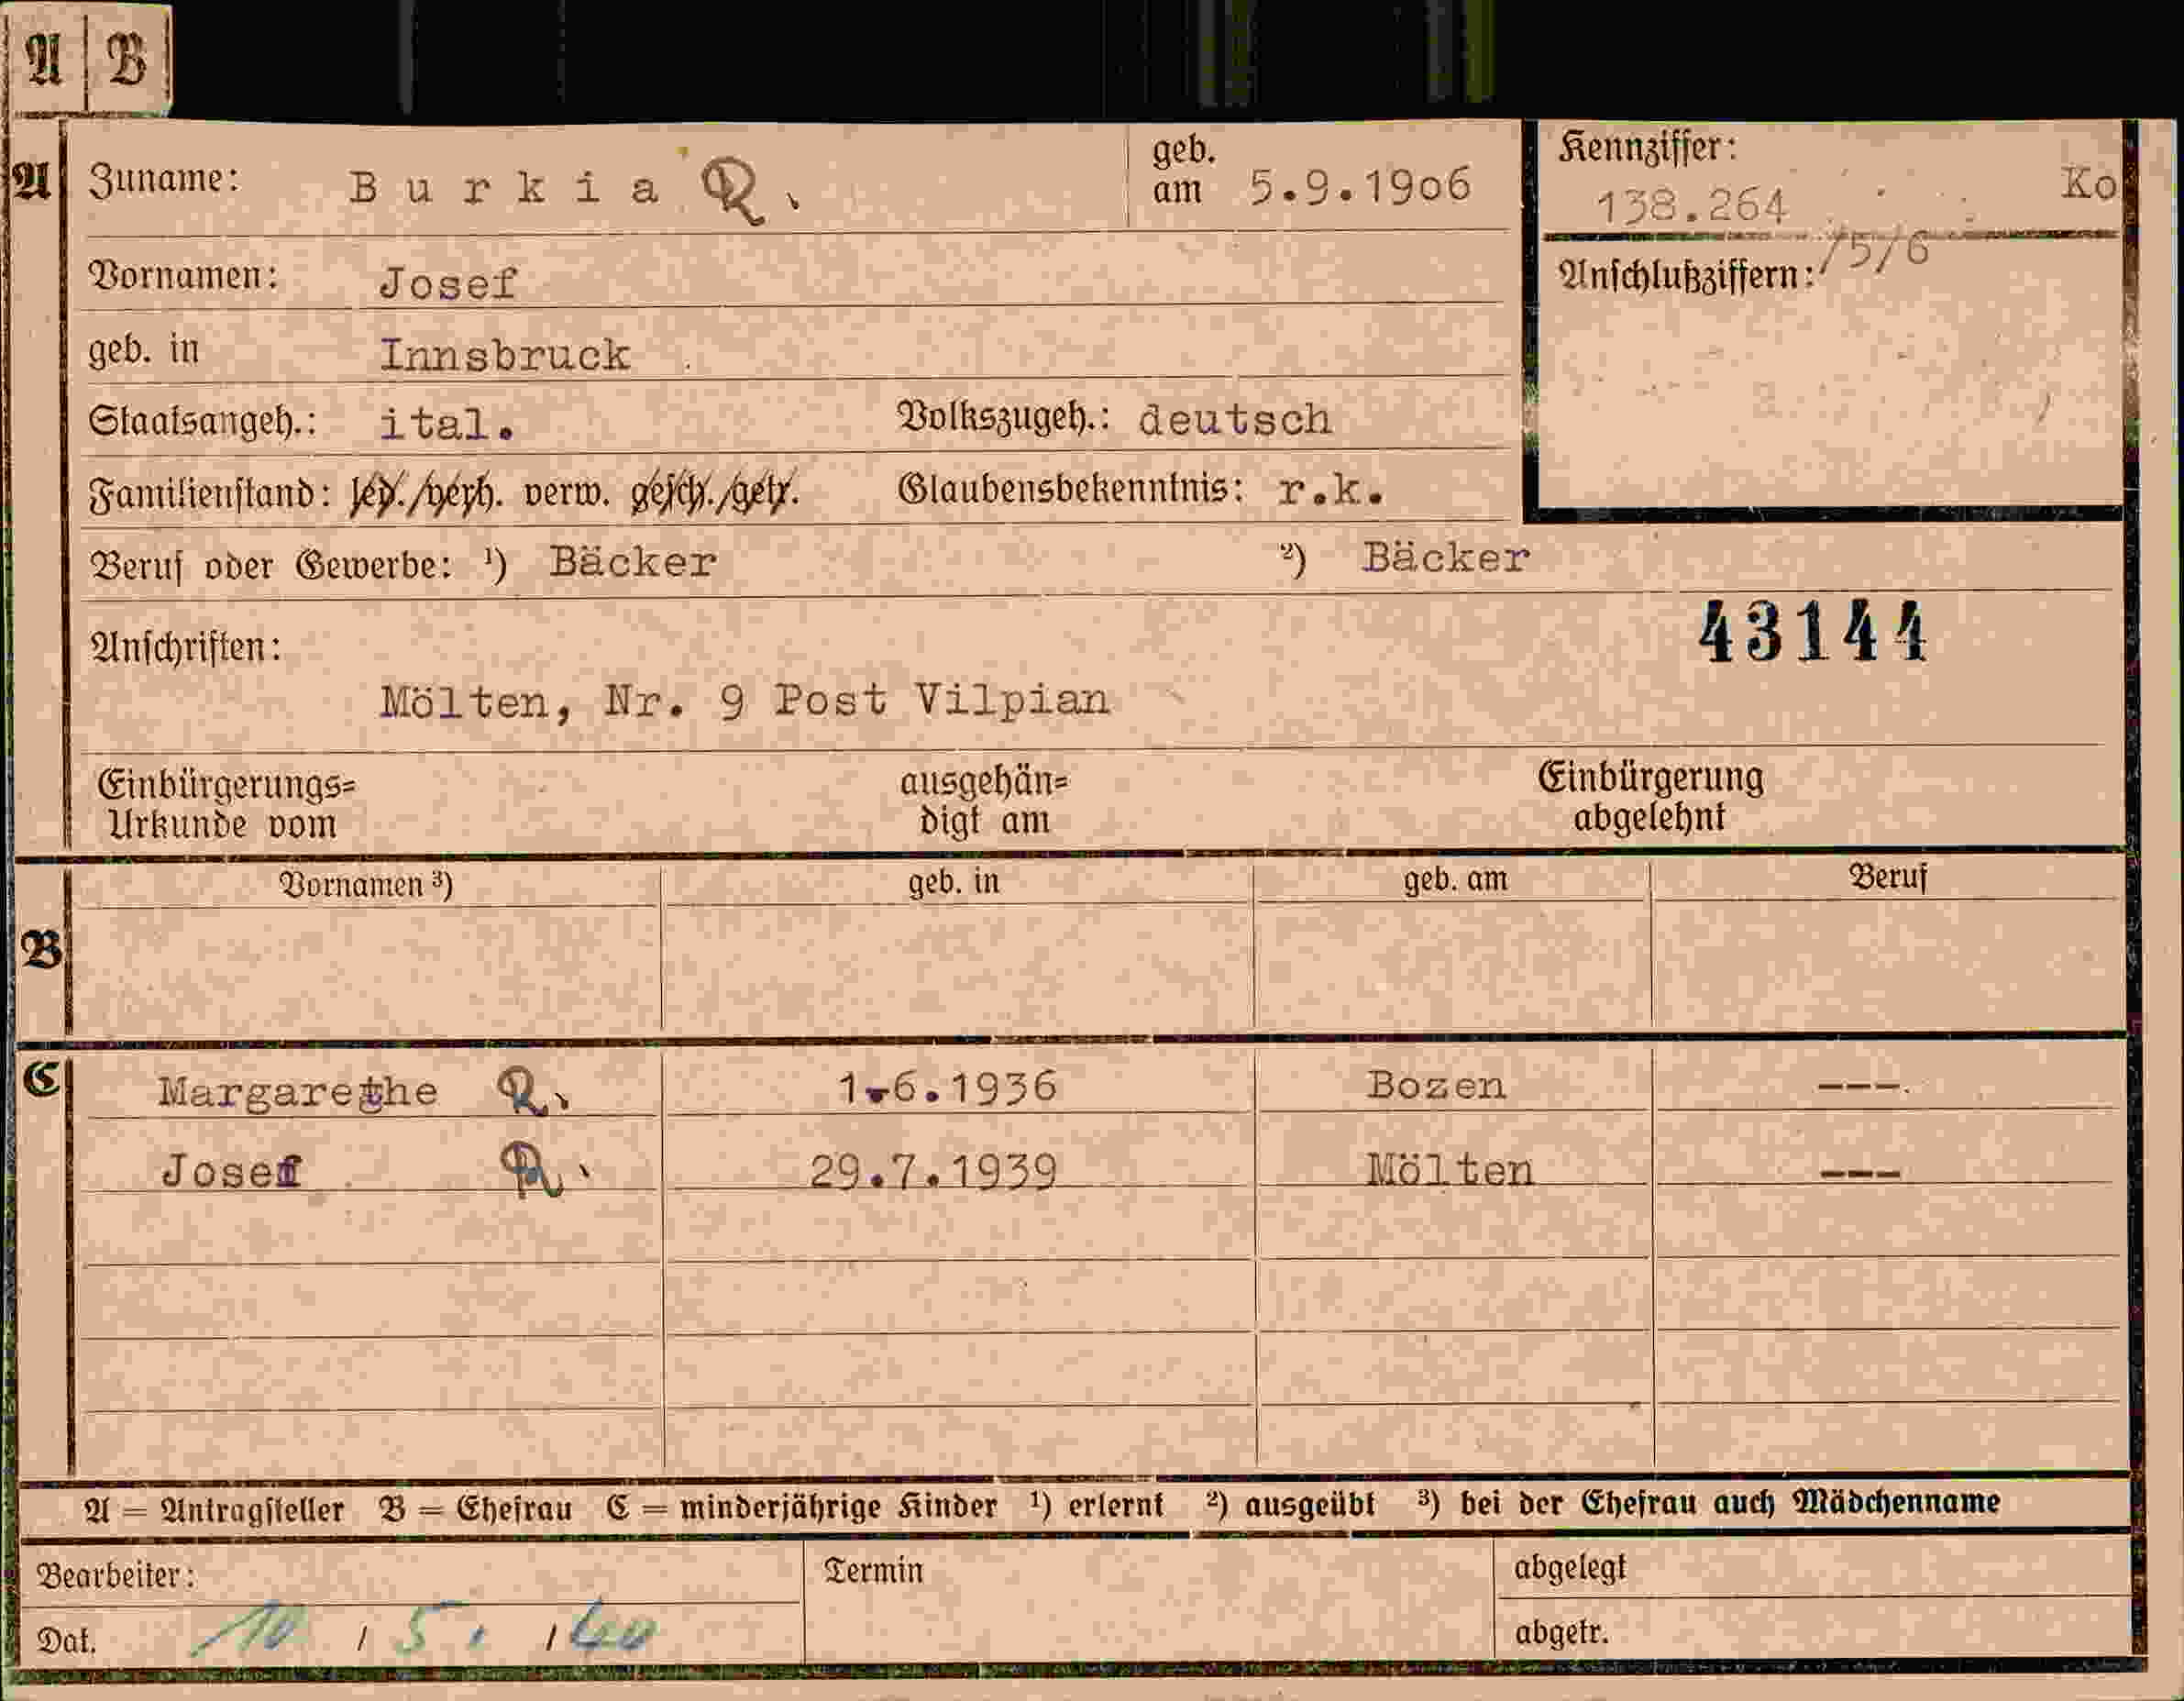 A B
A Zuname: Burkia R. geb. am 5.9.1906 Kennziffer: 138.264 Ko
/5/6
Vornamen: Josef Anschlußziffern:
geb. in Innsbruck
Staatsangeh.: ital. Volkszugeh.: deutsch
Familienstand: led./verh. verw. gesch./getr. Glaubensbekenntnis: r.k.
Beruf oder Gewerbe: ¹) Bäcker ²) Bäcker
43144
Anschriften:
Mölten, Nr. 9 Post Vilpian
Einbürgerungs= ausgehän= Einbürgerung
Urkunde vom digt am abgelehnt
Vornamen ³) geb. in geb. am Beruf
B
C Margarethe R. 1.6.1936 Bozen ---.
Josef R. 29.7.1939 Mölten ---
A = Antragsteller B = Ehefrau C = minderjährige Kinder ¹) erlernt ²) ausgeübt ³) bei der Ehefrau auch Mädchenname
Bearbeiter: Termin abgelegt
Dat. 10 / 5. / 40 abgetr.